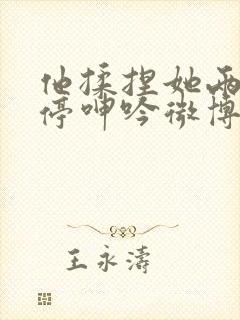 他揉捏她两
停呻吟微博
王永涛